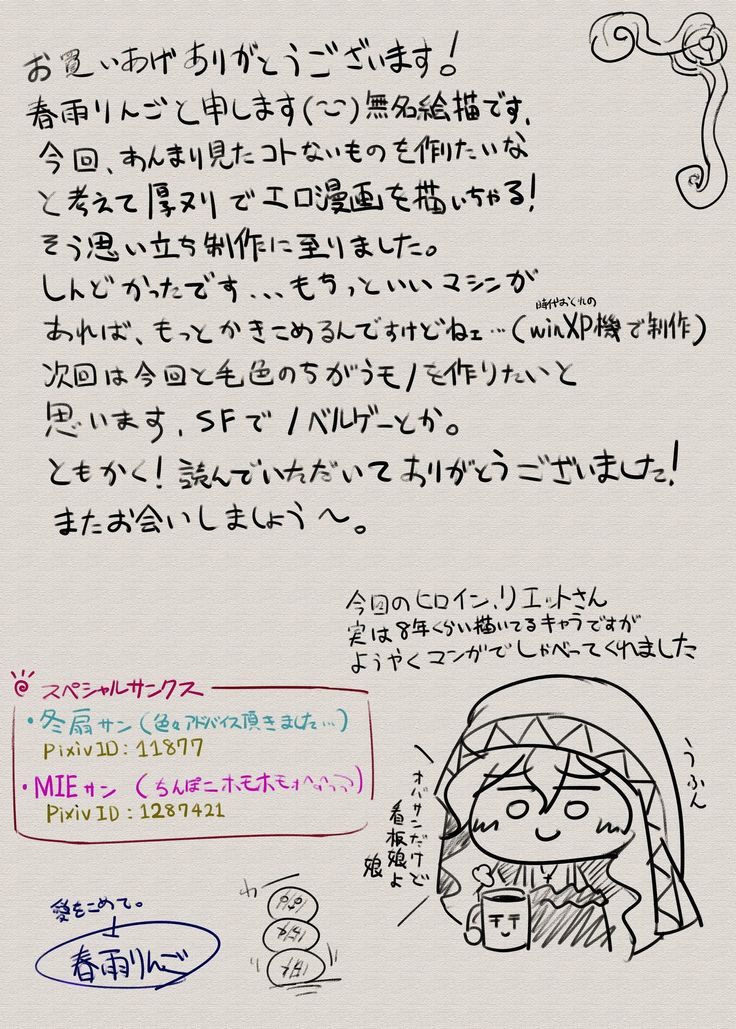 お買いあげありがとうございます!
春雨りんごと申します(~ـ~)無名絵描です、
今回、あんまり見たコトないものを作りたいな
と考えて厚ヌリでエロ漫画を描いちゃる!
そう思い立ち制作に至りました。
しんどかったです...もちっといいマシンが
あれば、もっとかきこめるんですけどねェ…(winXP機で制作)
時代おくれの
次回は今回と毛色のちがうモノを作りたいと
思います、SFでノベルゲーとか。
ともかく!読んでいただいてありがとうございました!
またお会いしましょう〜。
今回のヒロイン、リエットさん
実は8年くらい描いてるキャラですが
ようやくマンガでしゃべってくれました
スペシャルサンクス
・冬扇サン(色々アドバイス頂きました…)
PixivID:11877
・MIEサン(ちんぽこホモホモ
PixivID:1287421
うふん
オバサンだけど
看板娘よ
娘
愛をこめて。
春雨りんご